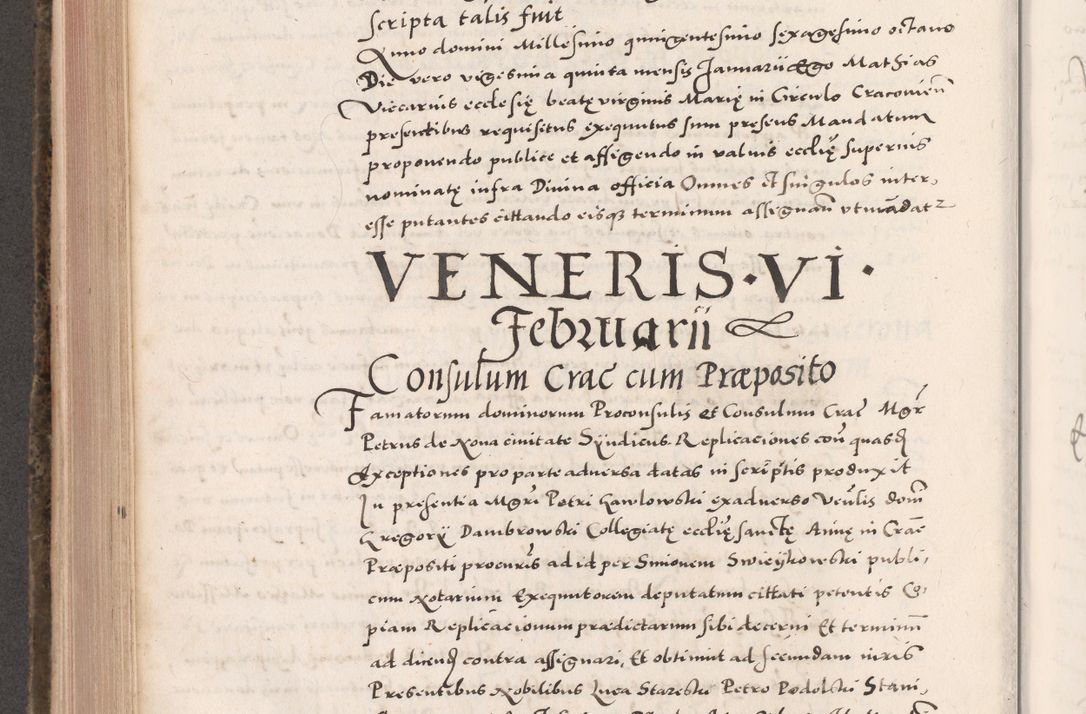 scripta talis fuit
Anno domini Millesimo quingentesimo sexagesimo octavo
Die vero vigesima quinta mensis Januarii Ego Mathias
Viccarius ecclesię beatę virginis Marię in Circulo Cracovieñ
presentibus requisitus exequutus sum presens Mandatum
proponendo publice et affigendo in valvis ecclię superius
nominatę infra Divina officia Omnes et singulos inter,
esse putantes cittando eisqꝫ terminum assignañ
VENERIS · VI ·
Februarii
Consulum Crac̃ cum Præposito
Famatorum dominorum Proconsulis et Consulum Crac̃ Mgr̃
Petrus de Nova civitate Syndicus Replicaciones coñ quasdã
Exceptiones pro parte adversa datas in scriptis produxit
In presentia Mgri Petri Gawlowski ex adverso Veñlis domĩ
Gregorÿ Dambrowski Collegiatę ecclię sanctę Annę in Crac̃
Præpositi procuris ad id per Simonem Swieÿkowski publi,
cum Notarium Exequutorem deputatum cittati petentis Co,
piam Replicacionum prædictarum sibi decerni Et terminũ
ad dicendã contra assignari, Et obtinuit ad secundam iuris
Presentibus Nobilibus Luca Starzeski Petro Podolski Stani,